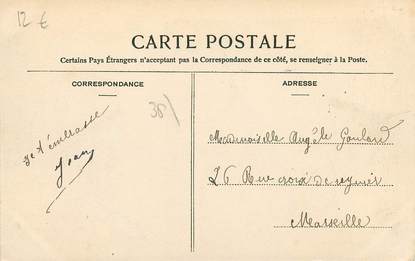 12 €
CARTE POSTALE
Certains Pays Étrangers n'acceptant pas la Correspondance de ce côté, se renseigner à la Poste.
CORRESPONDANCE
ADRESSE
38
Je t'embrasse
Jean
Mademoiselle Angèle
26 Rue croix de
Marseille